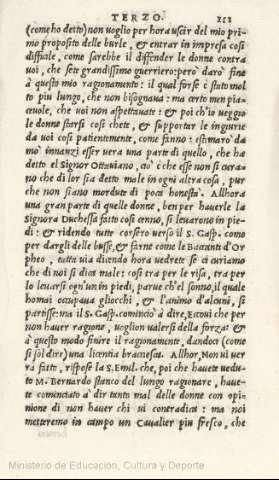 TERZO. 151
(come ho detto) non voglio per hora uscir del mio pri-
mo proposito delle burle, & entrar in impresa cosi
difficile, come sarebbe il diffender le donne contra
voi, che sete grandissimo guerriero: però darò fine
à questo mio ragionamento: il qual forse è stato mol-
to piu lungo, che non bisognaua: ma certo men pia-
ceuole, che voi non aspettauate: & poi ch'io veggio
le donne starsi cosi chete, & supportar le ingiurie
da voi cosi patientemente, come fanno: estimarò da
mò innanzi esser vera una parte di quello, che ha
detto el Signor Ottauiano, ciò è che esse non si cura-
no che di lor sia detto male in ogni altra cosa, pur
che non siano mordute di poca honestà. Allhora
una gran parte di quelle donne, ben per hauerle la
Signora Duchessa fatto cosi cenno, si leuarono in pie-
di: & ridendo tutte corsero verso il S. Gasp. come
per dargli delle busse, & farne come le Baccanti d'Or
pheo, tutta via dicendo hora vedrete se ci curiamo
che di noi si dica male: cosi tra per le risa, tra per
lo leuarsi ogn'un in piedi, parue ch'el sonno, il quale
homai occupaua gliocchi, & l'animo d'alcuni, si
partisse: ma il S. Gasp. cominciò à dire, Eccoui che per
non hauer ragione, voglion valersi della forza: &
à questo modo finire il ragionamento, dandoci (come
si sol dire) una licentia braccesca. Allhor, Non vi ver
rà fatto, rispose la S. Emil. che, poi che hauete vedu-
to M. Bernardo stanco del lungo ragionare, haue-
te cominciato à dir tanto mal delle donne con opi-
nione di non hauer chi vi contradica: ma noi
metteremo in campo un Caualier piu fresco, che
Ministerio de Educación, Cultura y Deporte